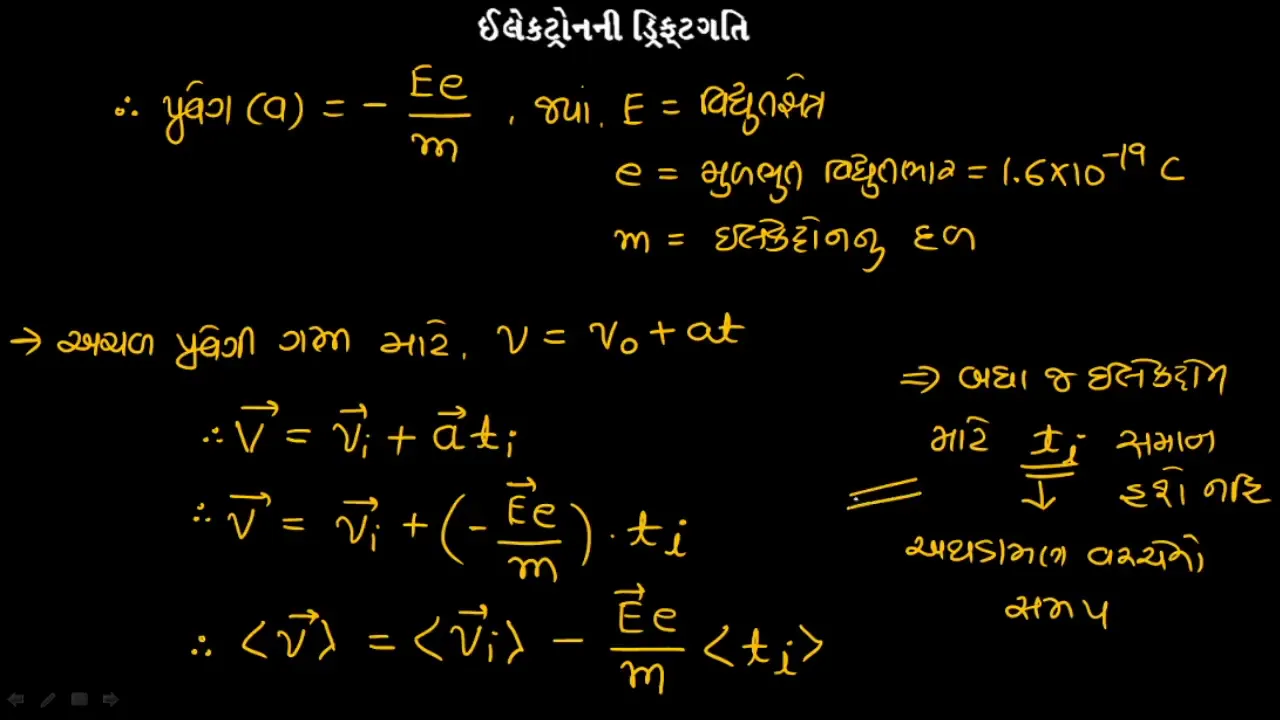 ઈલેકટ્રોનની ડ્રિફ્ટગતિ
∴ પ્રવેગ (a) = - Ee/m , જ્યાં, E = વિદ્યુતક્ષેત્ર
e = મુળભુત વિદ્યુતભાર = 1.6×10⁻¹⁹ C
m = ઇલેક્ટ્રોનનુ દળ
→ અચળ પ્રવેગી ગતિ માટે, v = v₀ + at
∴ v⃗ = v⃗ᵢ + a⃗ tᵢ
∴ v⃗ = v⃗ᵢ + (- E⃗e/m) · tᵢ
∴ ⟨v⃗⟩ = ⟨v⃗ᵢ⟩ - E⃗e/m ⟨tᵢ⟩
⇒ બધા જ ઇલેક્ટ્રોન
માટે tᵢ સમાન
↓ હશે નહિ
અથડામણ વચ્ચેનો
સમય